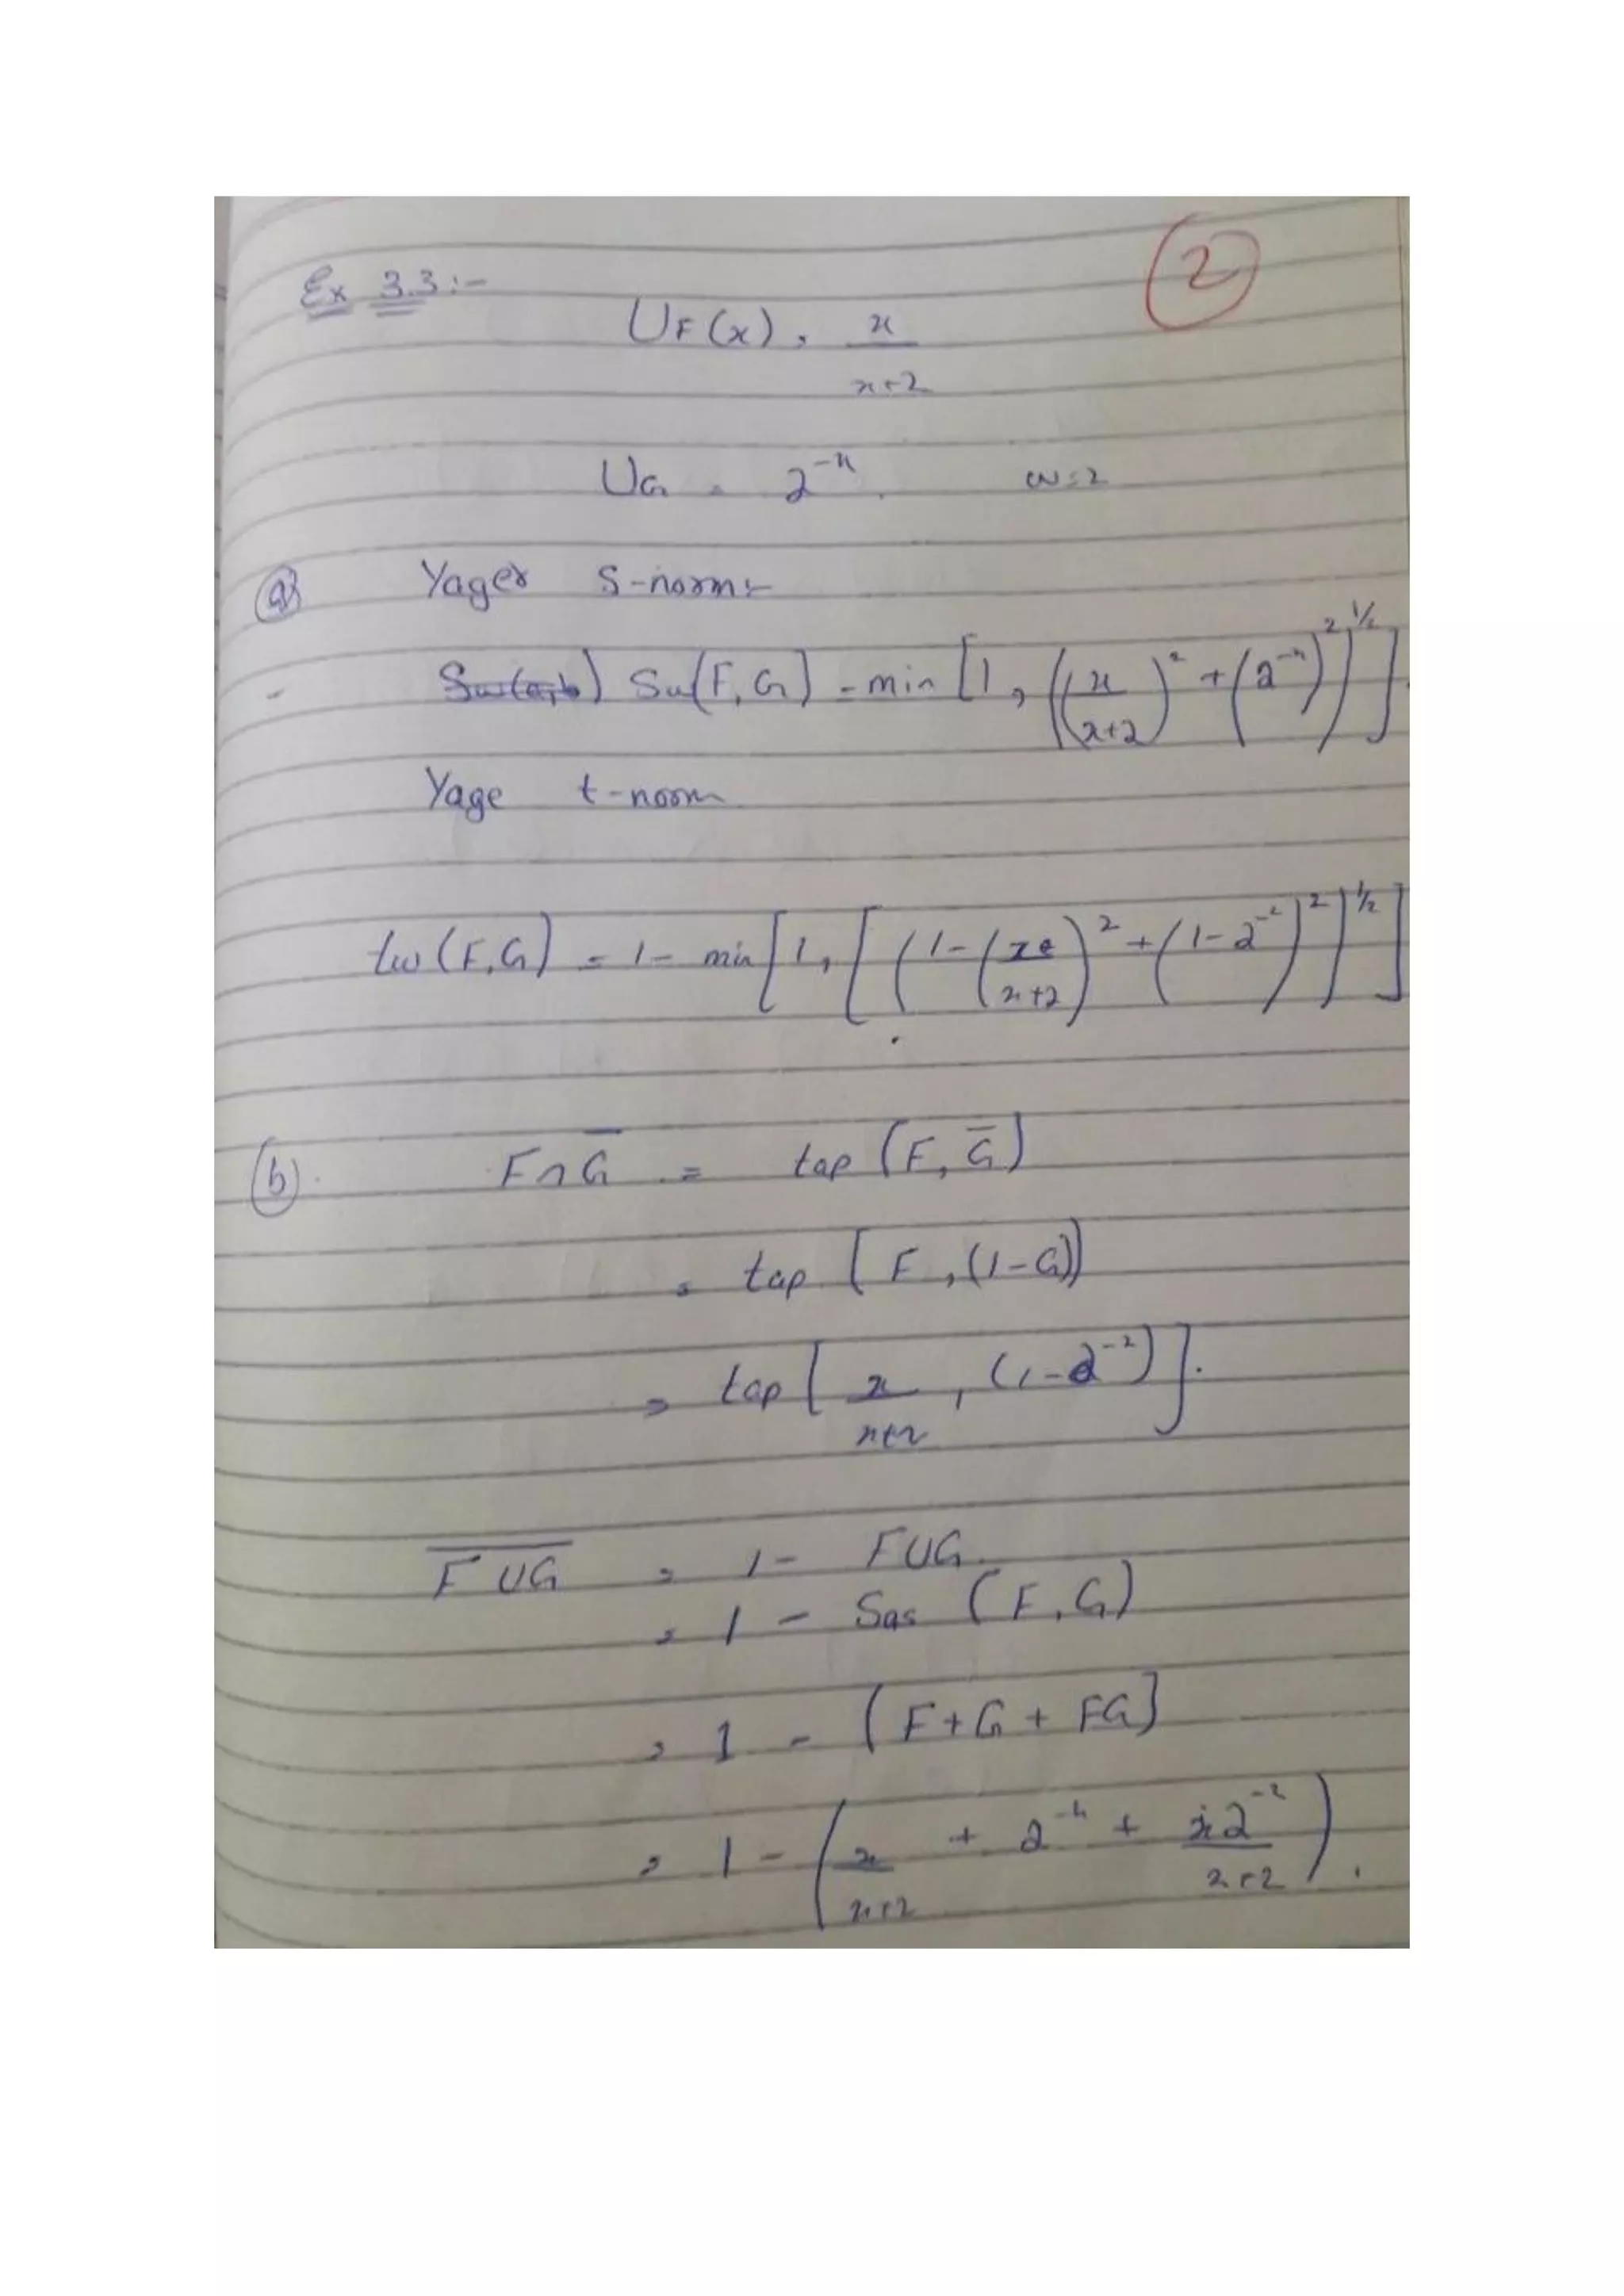 Ex 3.3:-
2
UF(x) = x / x+2
UG = 2^-x w=2
(a) Yager S-norm:-
Sw(a,b) Sw(F,G) = min [1, ((x / x+2)^2 + (2^-x)^2)^1/2]
Yage t-norm
tw(F,G) = 1- min [1, [(1-(x / x+2)^2 + (1-2^-x)^2]^1/2]
(b) F∩G̅ = tap (F, G̅)
= tap [F, (1-G)]
= tap [x / x+2, (1-2^-x)].
F̅ ̅U̅G̅ = 1- FUG
= 1 - Sas (F, G)
= 1 - (F+G + FG]
= 1 - (x / x+2 + 2^-x + x2^-x / x+2).